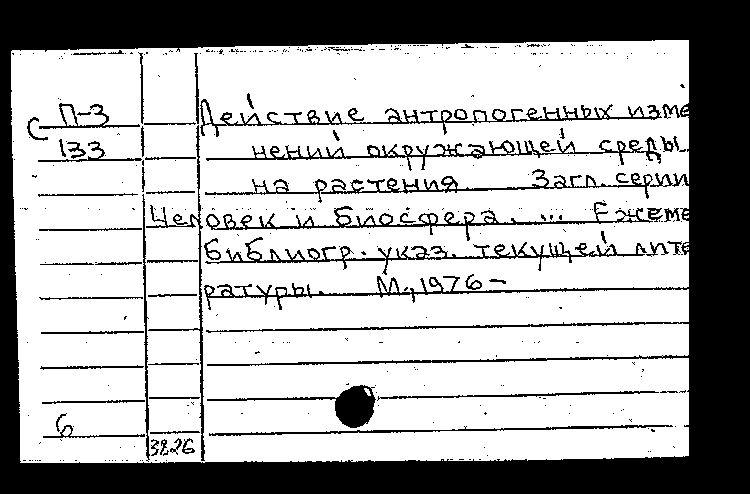 С П-3
133
Действие антропогенных изме
нений окружающей среды
на растения Загл. серии
Человек и биосфера. ... Ежеме
библиогр. указ. текущей лите
ратуры. М, 1976 –
6
3826